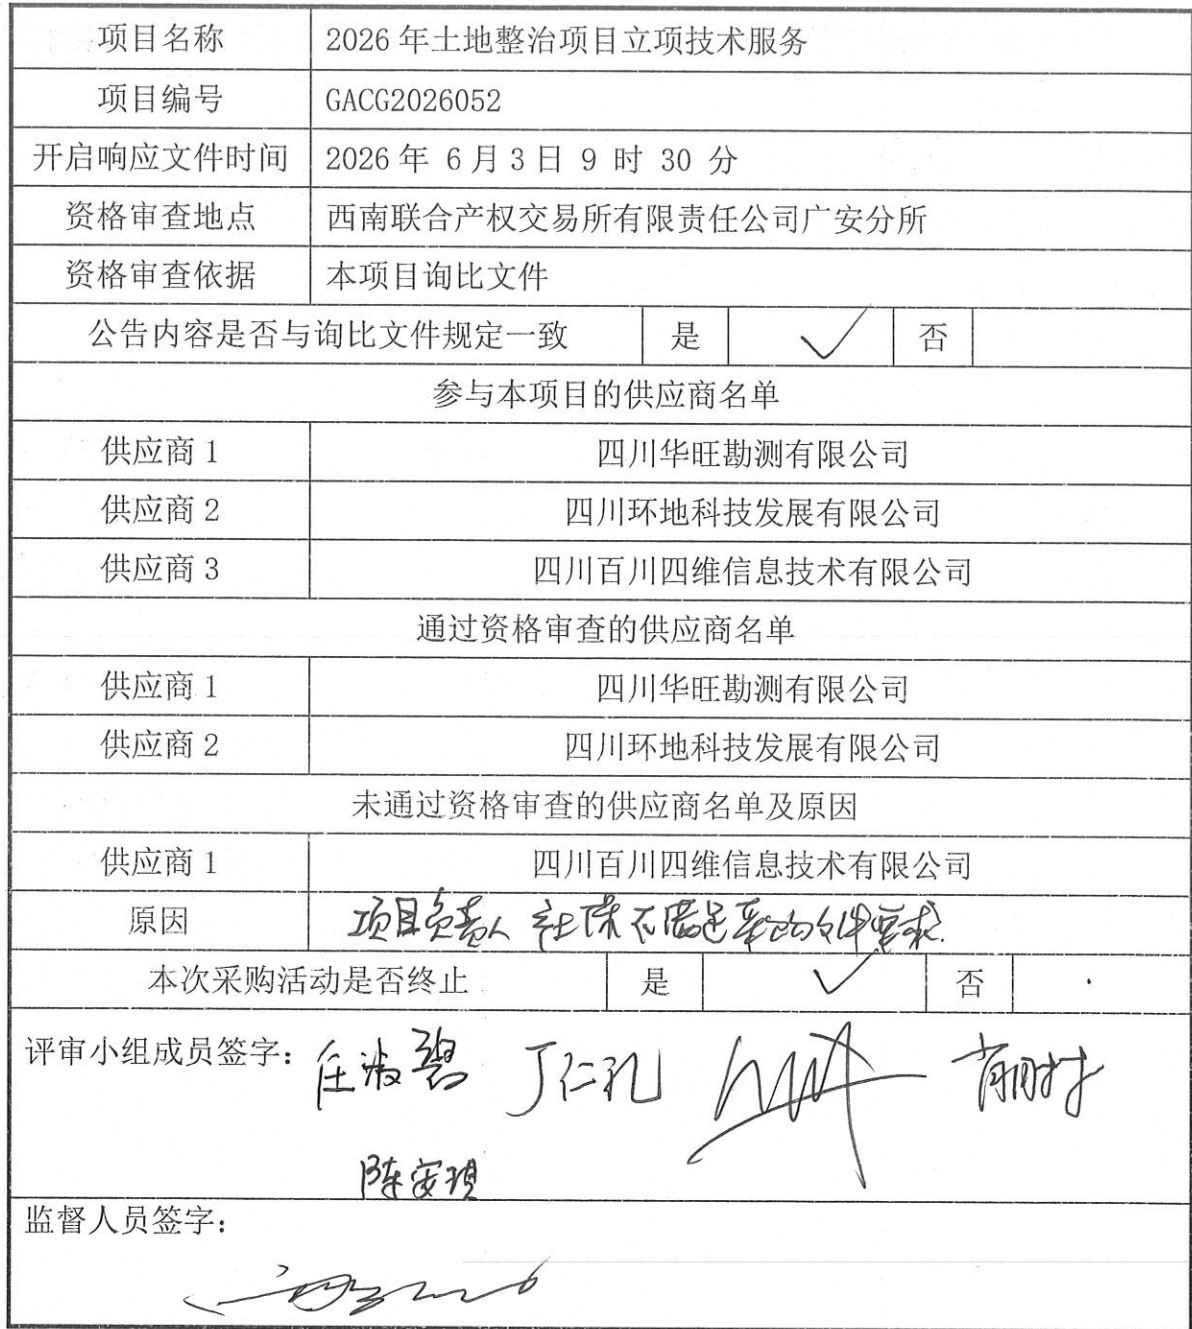 项目名称 2026年土地整治项目立项技术服务
项目编号 GACG2026052
开启响应文件时间 2026年 6月3日 9 时 30 分
资格审查地点 西南联合产权交易所有限责任公司广安分所
资格审查依据 本项目询比文件
公告内容是否与询比文件规定一致 是 ✓ 否
参与本项目的供应商名单
供应商1 四川华旺勘测有限公司
供应商2 四川环地科技发展有限公司
供应商3 四川百川四维信息技术有限公司
通过资格审查的供应商名单
供应商1 四川华旺勘测有限公司
供应商2 四川环地科技发展有限公司
未通过资格审查的供应商名单及原因
供应商1 四川百川四维信息技术有限公司
原因 项目负责人社保不满足采购文件要求.
本次采购活动是否终止 是 ✓ 否
评审小组成员签字: 任淑碧 丁仁孔
监督人员签字: